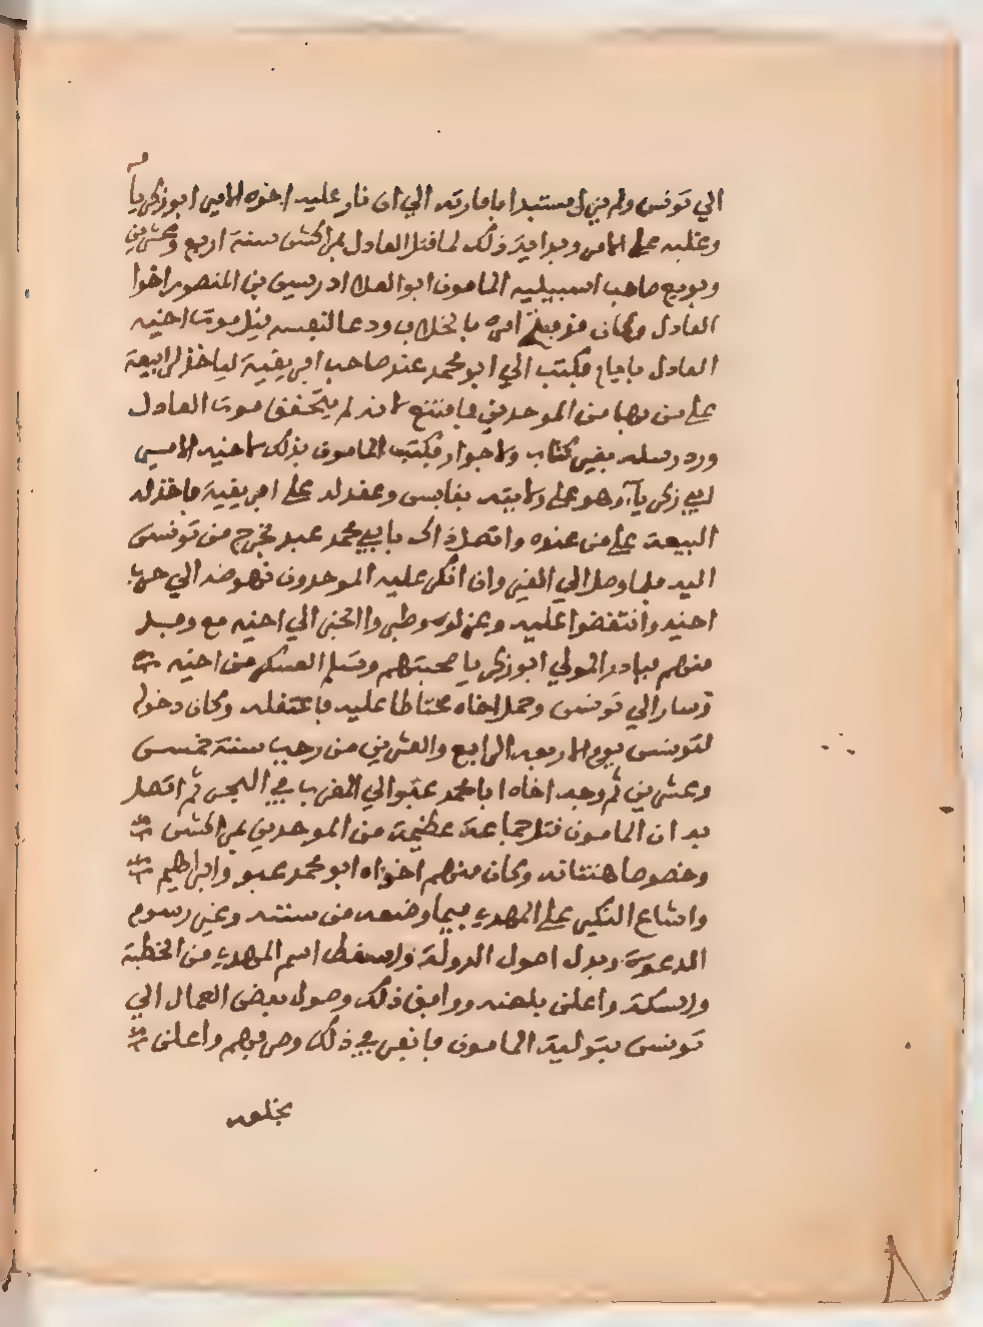 الي تونس ولم يزل مستبدا بامارته الي ان ثار عليه اخوه الامير ابو زكرياء
وغلبه على الامر وبداية ذلك لما قتل العادل بمراكش سنة اربع وعشرين
وبويع صاحب اسبيليه المامون ابو العلا ادريس بن المنصور اخوا
العادل وكان امره بالخلاف ودعا لنفسه قبل موت اخيه
العادل بايام فكتب الي ابو محمد عند صاحب افريقية لياخذ له البيعة
على من بها من الموحدين فامتنع لانه لم يتحقق موت العادل
ورد رسله بغير كتاب ولا جواد فكتب المامون بذلك لاخيه الامير
ابي زكرياء وهو على ولايته بقابس وعقد له على افريقية فاخذ له
البيعة على من عنده واتصل ذاك بابي محمد عبد فخرج من تونس
اليه فلما وصل الي القيروان انكر عليه الموحدون نهوضه الي حرب
اخيه وانتقضوا عليه وعزلوه وطيروا الخبر الي اخيه مع وفد
منهم فبادر المولي ابو زكريا صحبتهم وتسلم العسكر من اخيه
وسار الي تونس وحمل اخاه محتاطا عليه فاعتقله وكان دخول
لتونس يوم الاربعه الرابع والعشرين من رجب سنة خمس
وعشرين ثم وجه اخاه ابا محمد عبو الي المغرب في البحر ثم اتصل
به ان المامون قتل جماعة عظيمة من الموحدين بمراكش
وخصوصا هنتاته وكان منهم اخواه ابو محمد عبو وابراهيم
واشاع النكير على المهدي فيما وضعه من سنته وغير رسوم
الدعوة وبدل اصول الدولة واسقط اسم المهدي من الخطبة
والسكة واعلن بلعنه ووافق ذلك وصول بعض العمال الي
تونس بتولية المامون فانفى في ذلك وصرفهم واعلن
بخلعه